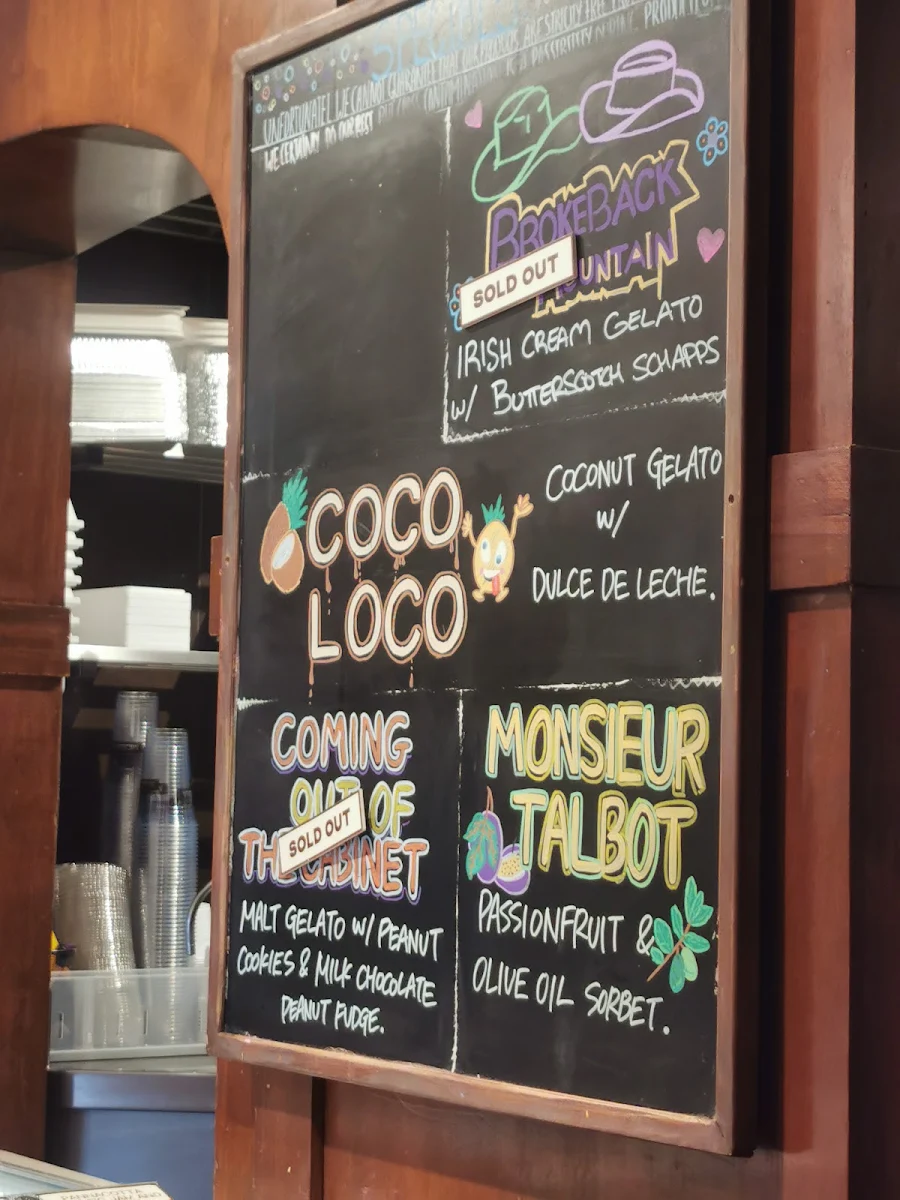 SPECIALS
UNFORTUNATELY WE CANNOT GUARANTEE THAT OUR PRODUCTS ARE STRICTLY FREE
WE CERTAINLY DO OUR BEST BUT
BROKEBACK
MOUNTAIN
SOLD OUT
IRISH CREAM GELATO
W/ BUTTERSCOTCH SCHAPPS
COCO
LOCO
COCONUT GELATO
W/
DULCE DE LECHE.
COMING
OUT OF
THE CABINET
SOLD OUT
MALT GELATO W/ PEANUT
COOKIES & MILK CHOCOLATE
PEANUT FUDGE.
MONSIEUR
TALBOT
PASSIONFRUIT &
OLIVE OIL SORBET.
PANNACOTTA